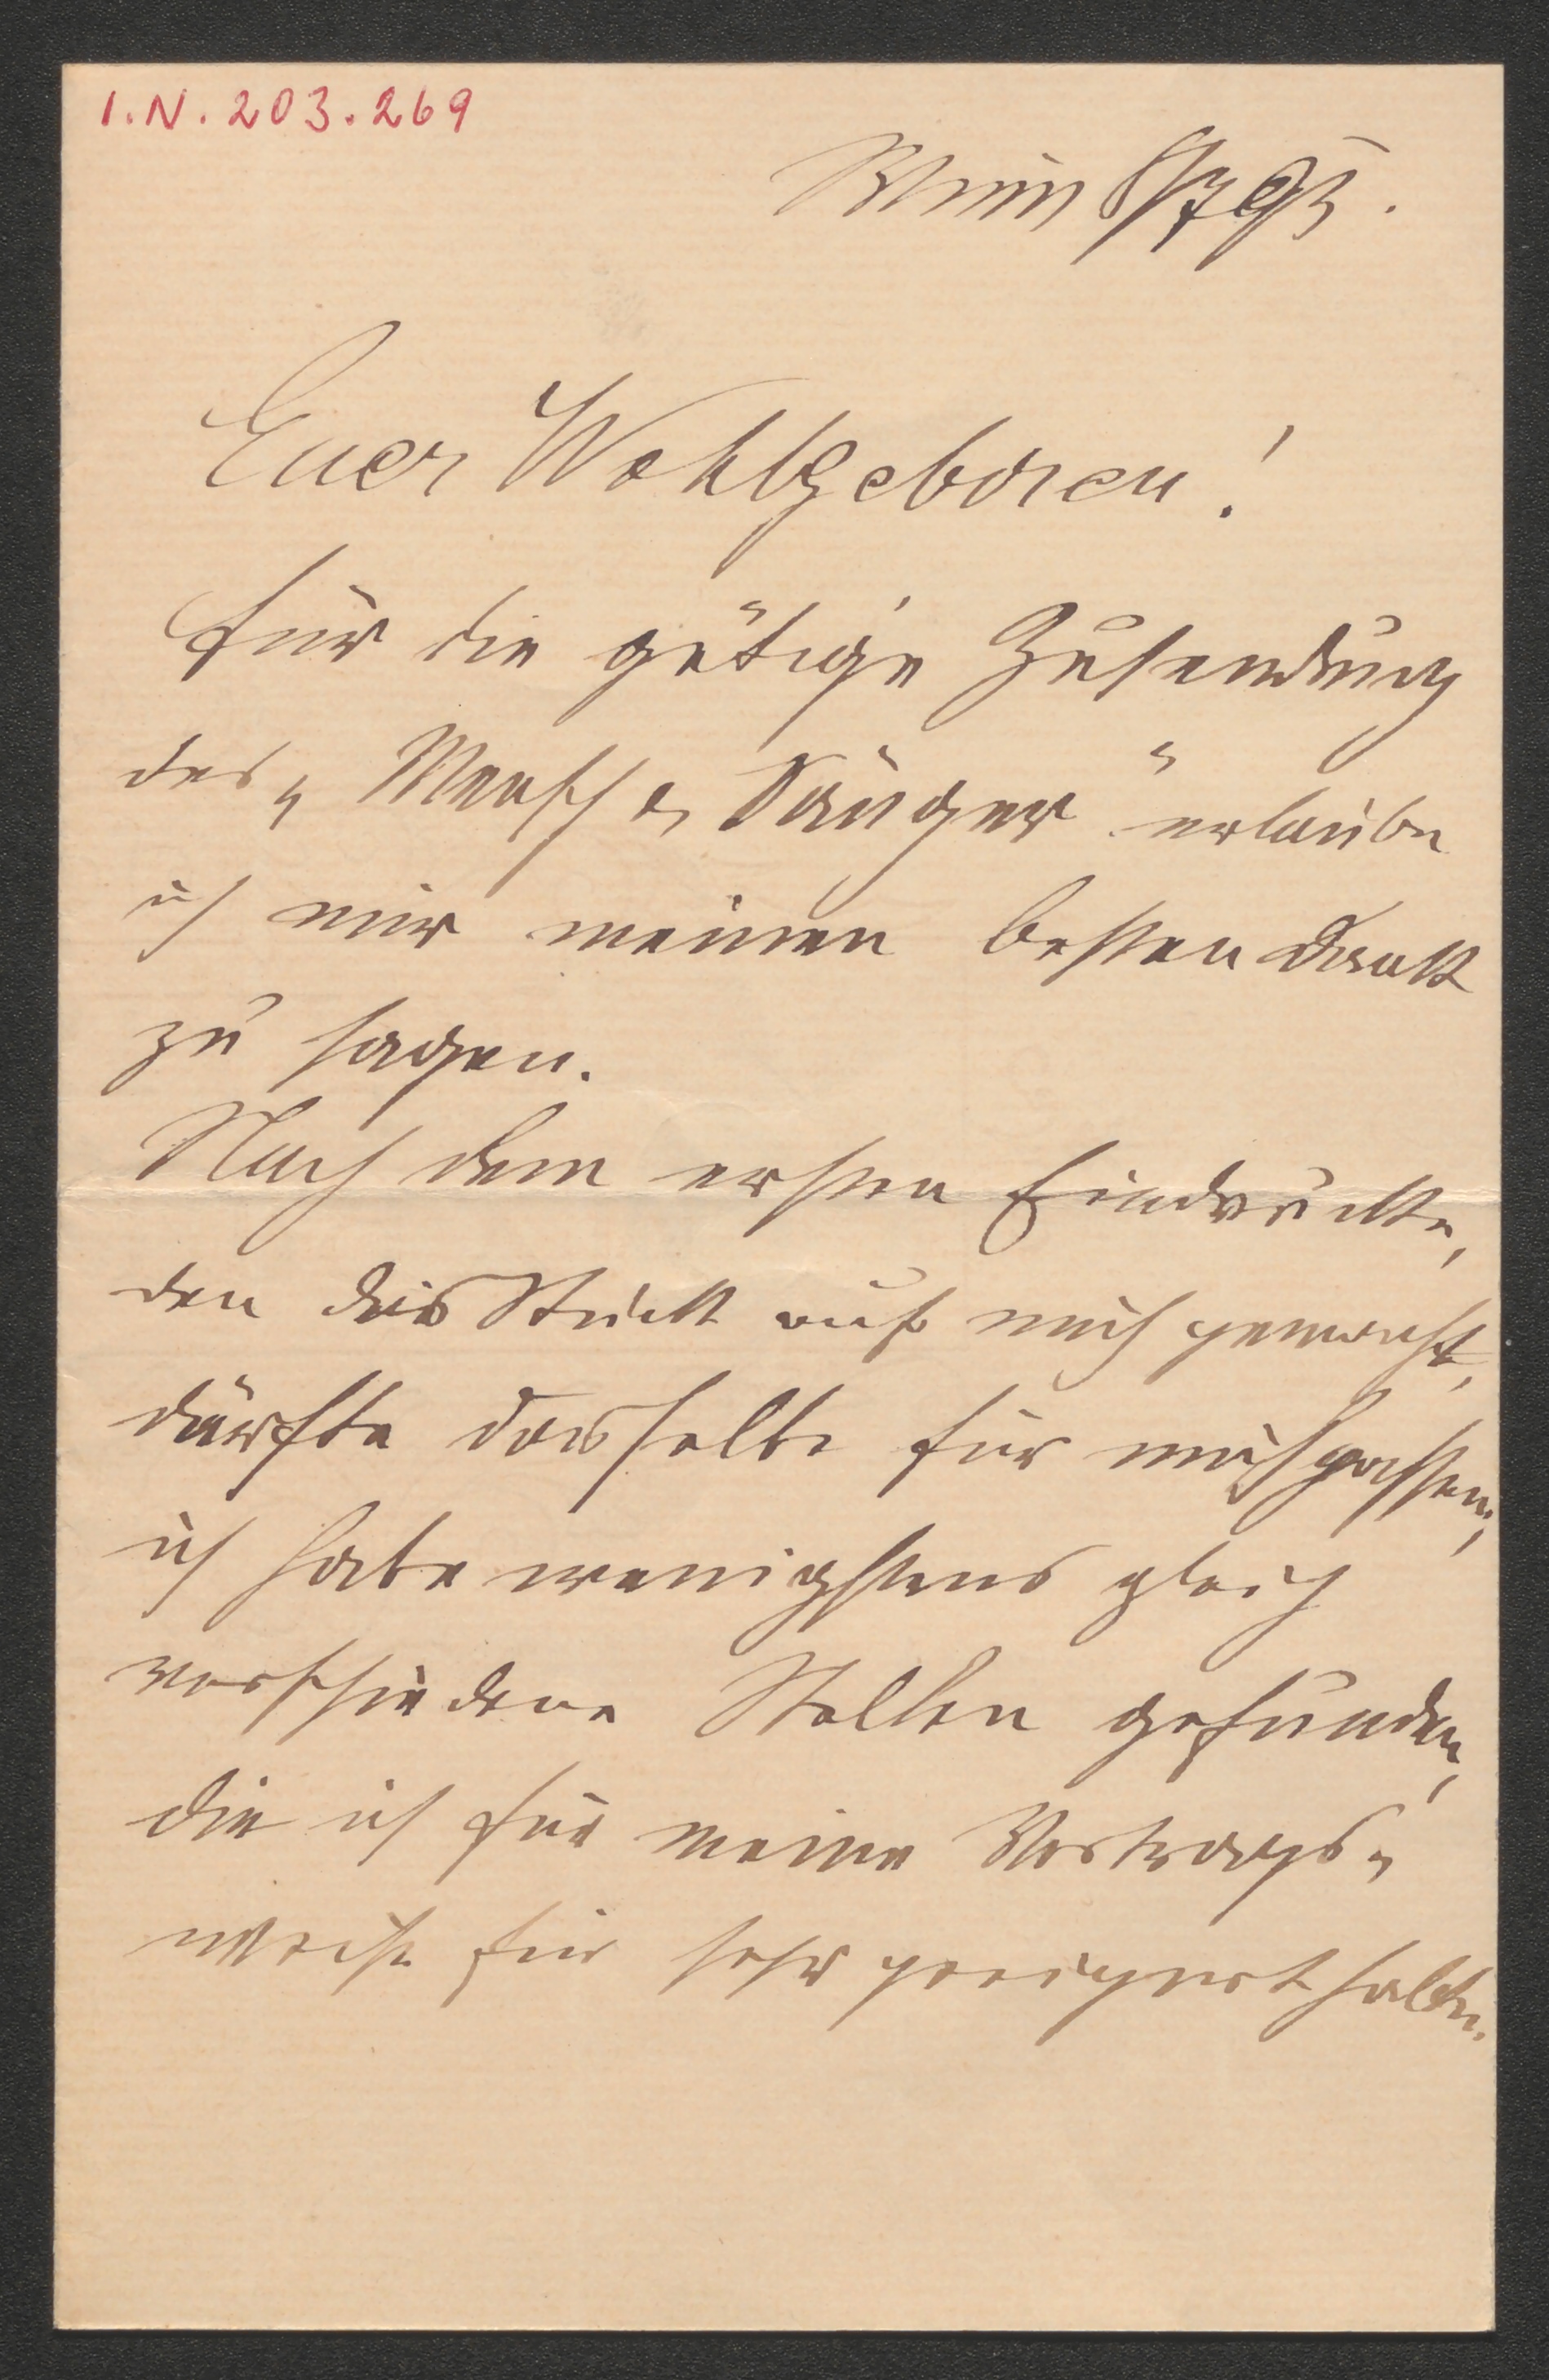 I.N. 203.269
Wien 8/7 93.
Euer Wohlgeboren!
Für die gütige Zusendung
des „ Sänger“ erlaube
ich mir meinen besten Dank
zu sagen.
Nach dem ersten Eindrucke,
den das Stück auf mich gemacht,
dürfte dasselbe für mich passen;
ich habe wenigstens gleich
verschiedene Stellen gefunden,
die ich für meine Vortrags-
weise für sehr geeignet halte.